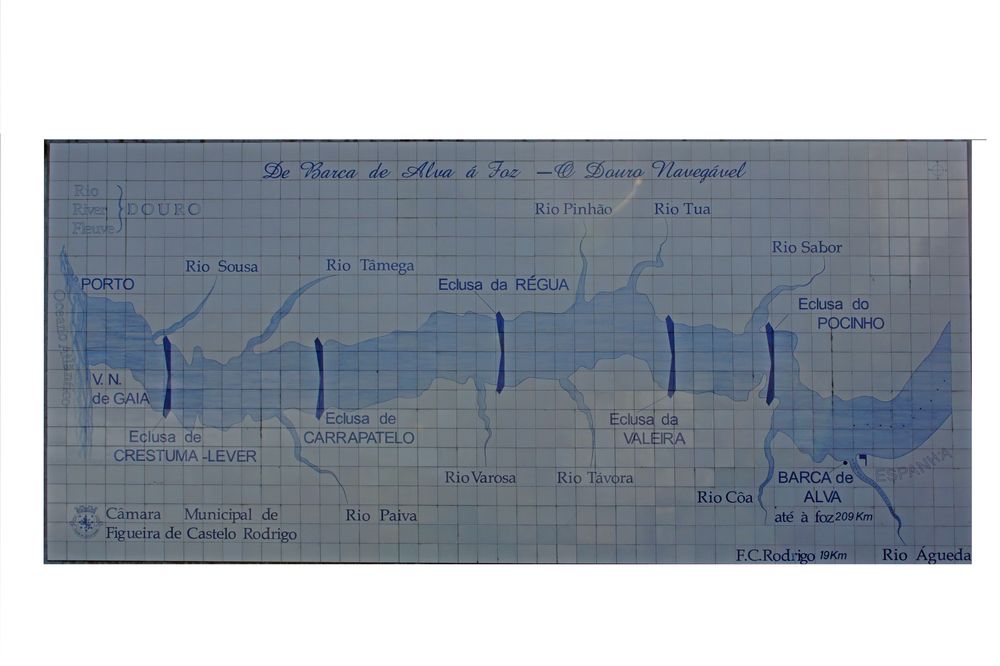 De Barca de Alva á Foz — O Douro Navegável
Rio
River
Fleuve
DOURO
Rio Pinhão
Rio Tua
Rio Sabor
Rio Sousa
Rio Tâmega
Eclusa da RÉGUA
PORTO
Eclusa do
POCINHO
Oceano Atlântico
V. N.
de GAIA
Eclusa de
CRESTUMA-LEVER
Eclusa de
CARRAPATELO
Eclusa da
VALEIRA
Rio Varosa
Rio Távora
Rio Côa
BARCA de
ALVA
até à foz 209 Km
ESPANHA
Câmara Municipal de
Figueira de Castelo Rodrigo
Rio Paiva
F.C.Rodrigo 19Km
Rio Águeda